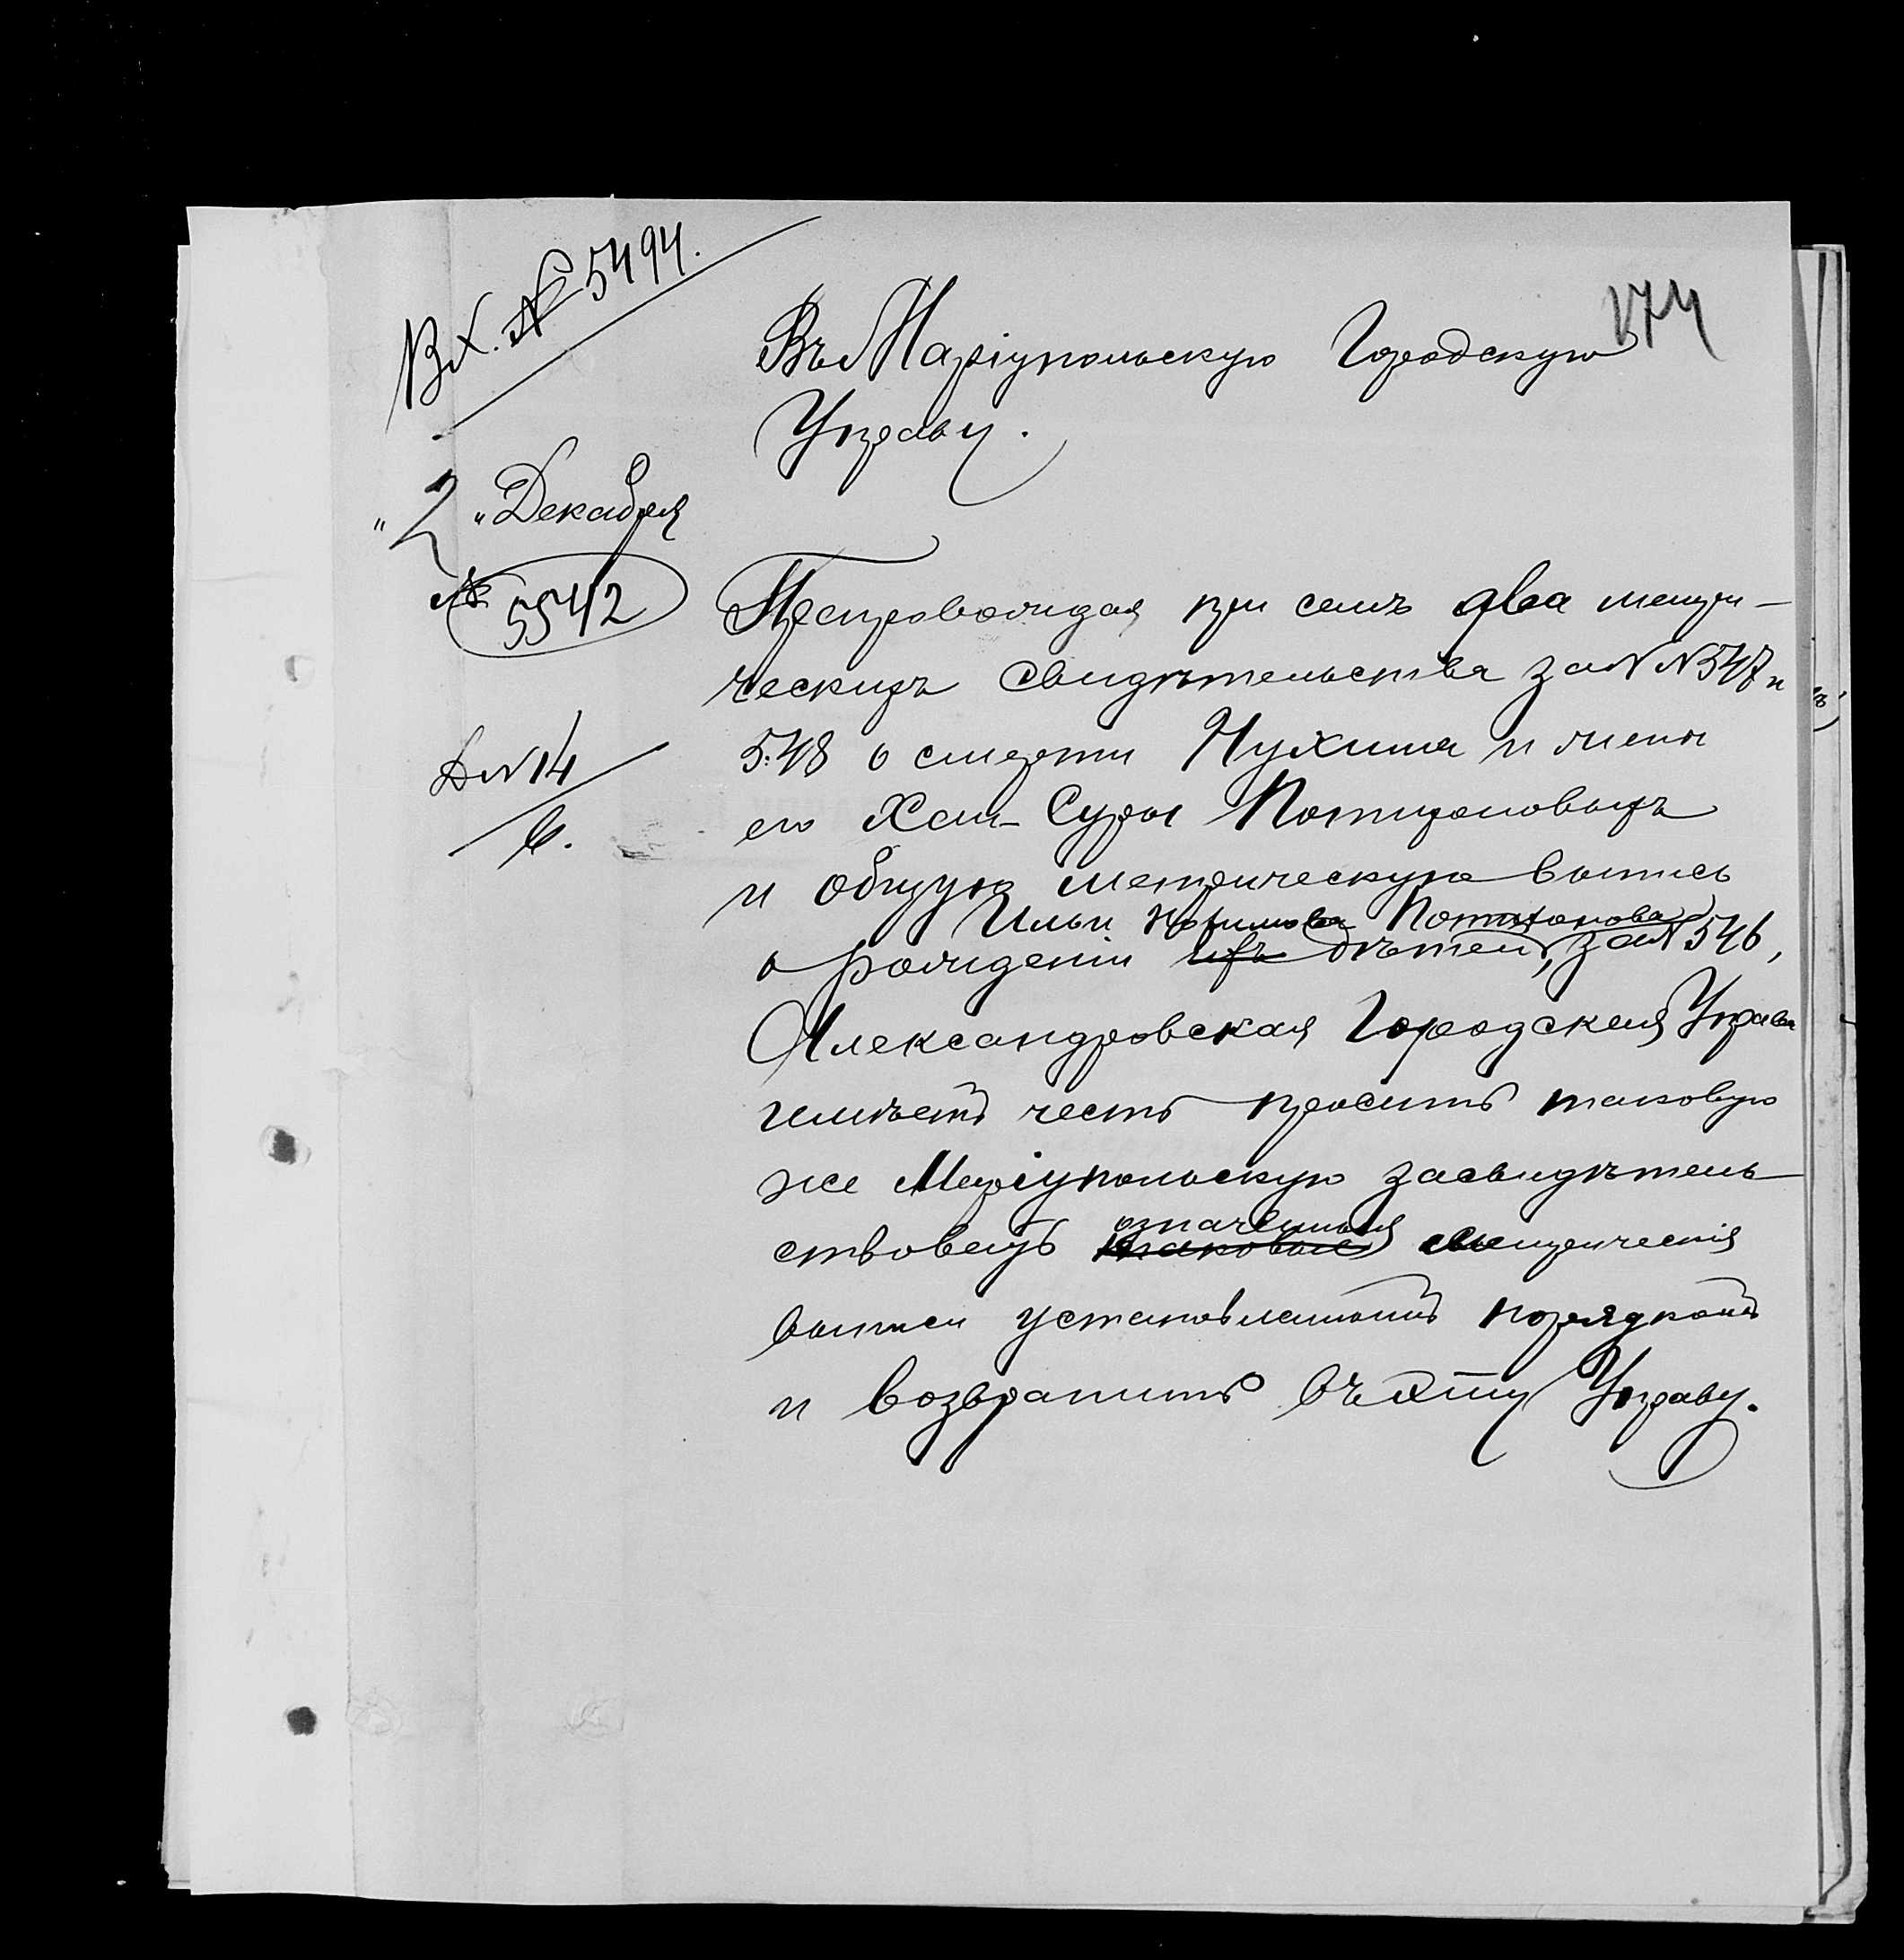 Вх. № 5494.
174
Въ Маріупольскую Городскую
Управу.
"2" Декабря
№ 5542
Д № 14
Препровождая при семъ два метри-
ческихъ свидѣтельства за № № 547 и
548 о смерти и жены
его Хаи-Суры
и общую метрическую выпись
Ильи
о рожденіи ихъ дѣтей, за № 546,
Александровская Городская Управа
имѣетъ честь просить таковую
же Маріупольскую засвидѣтель
означенныя
ствовать таковые метрическія
выписи установленнымъ порядкомъ
и возвратить въ эту Управу.